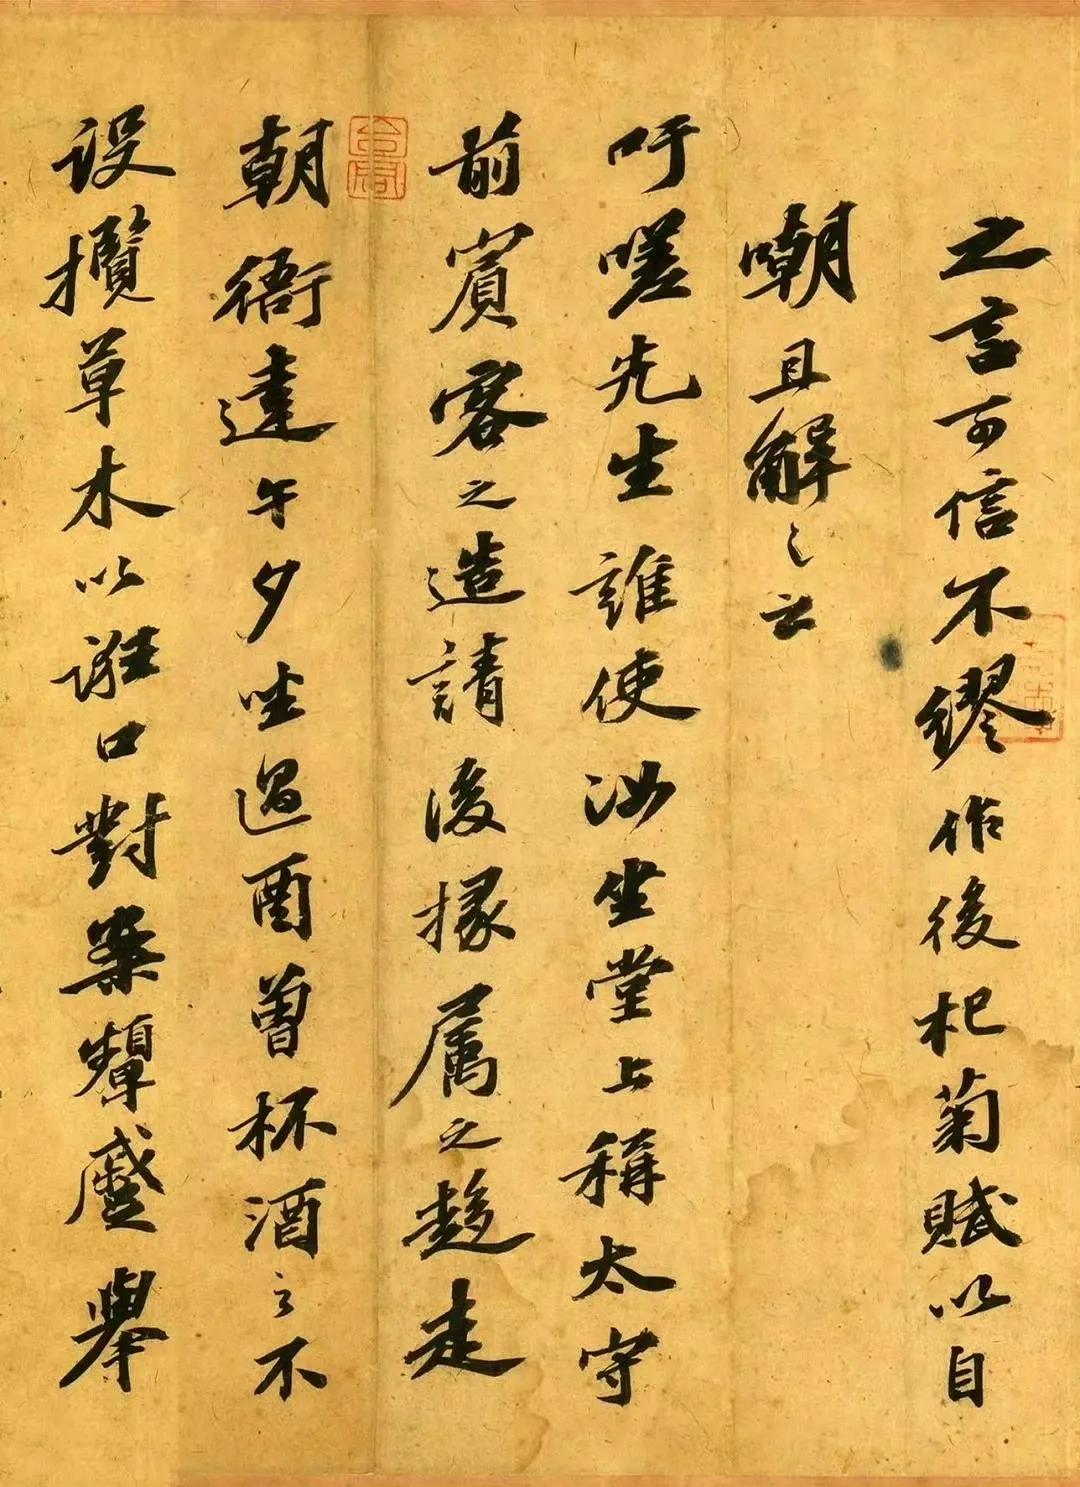 之言可信不繆作後杞菊賦以自
嘲且解之云
吁嗟先生誰使汝坐堂上稱太守
前賓客之造請後掾属之趍走
朝衙達午夕坐過酉曽杯酒之不
設攬草木以誑口對案顰蹙舉